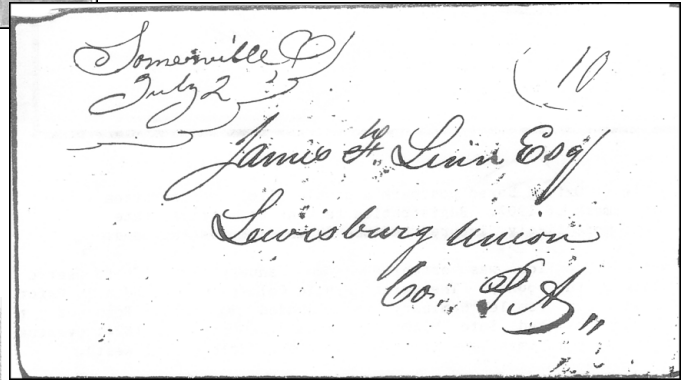 Somerville O
July 2
10
James F. Linn Esq
Lewisburg Union
Co. P A,,